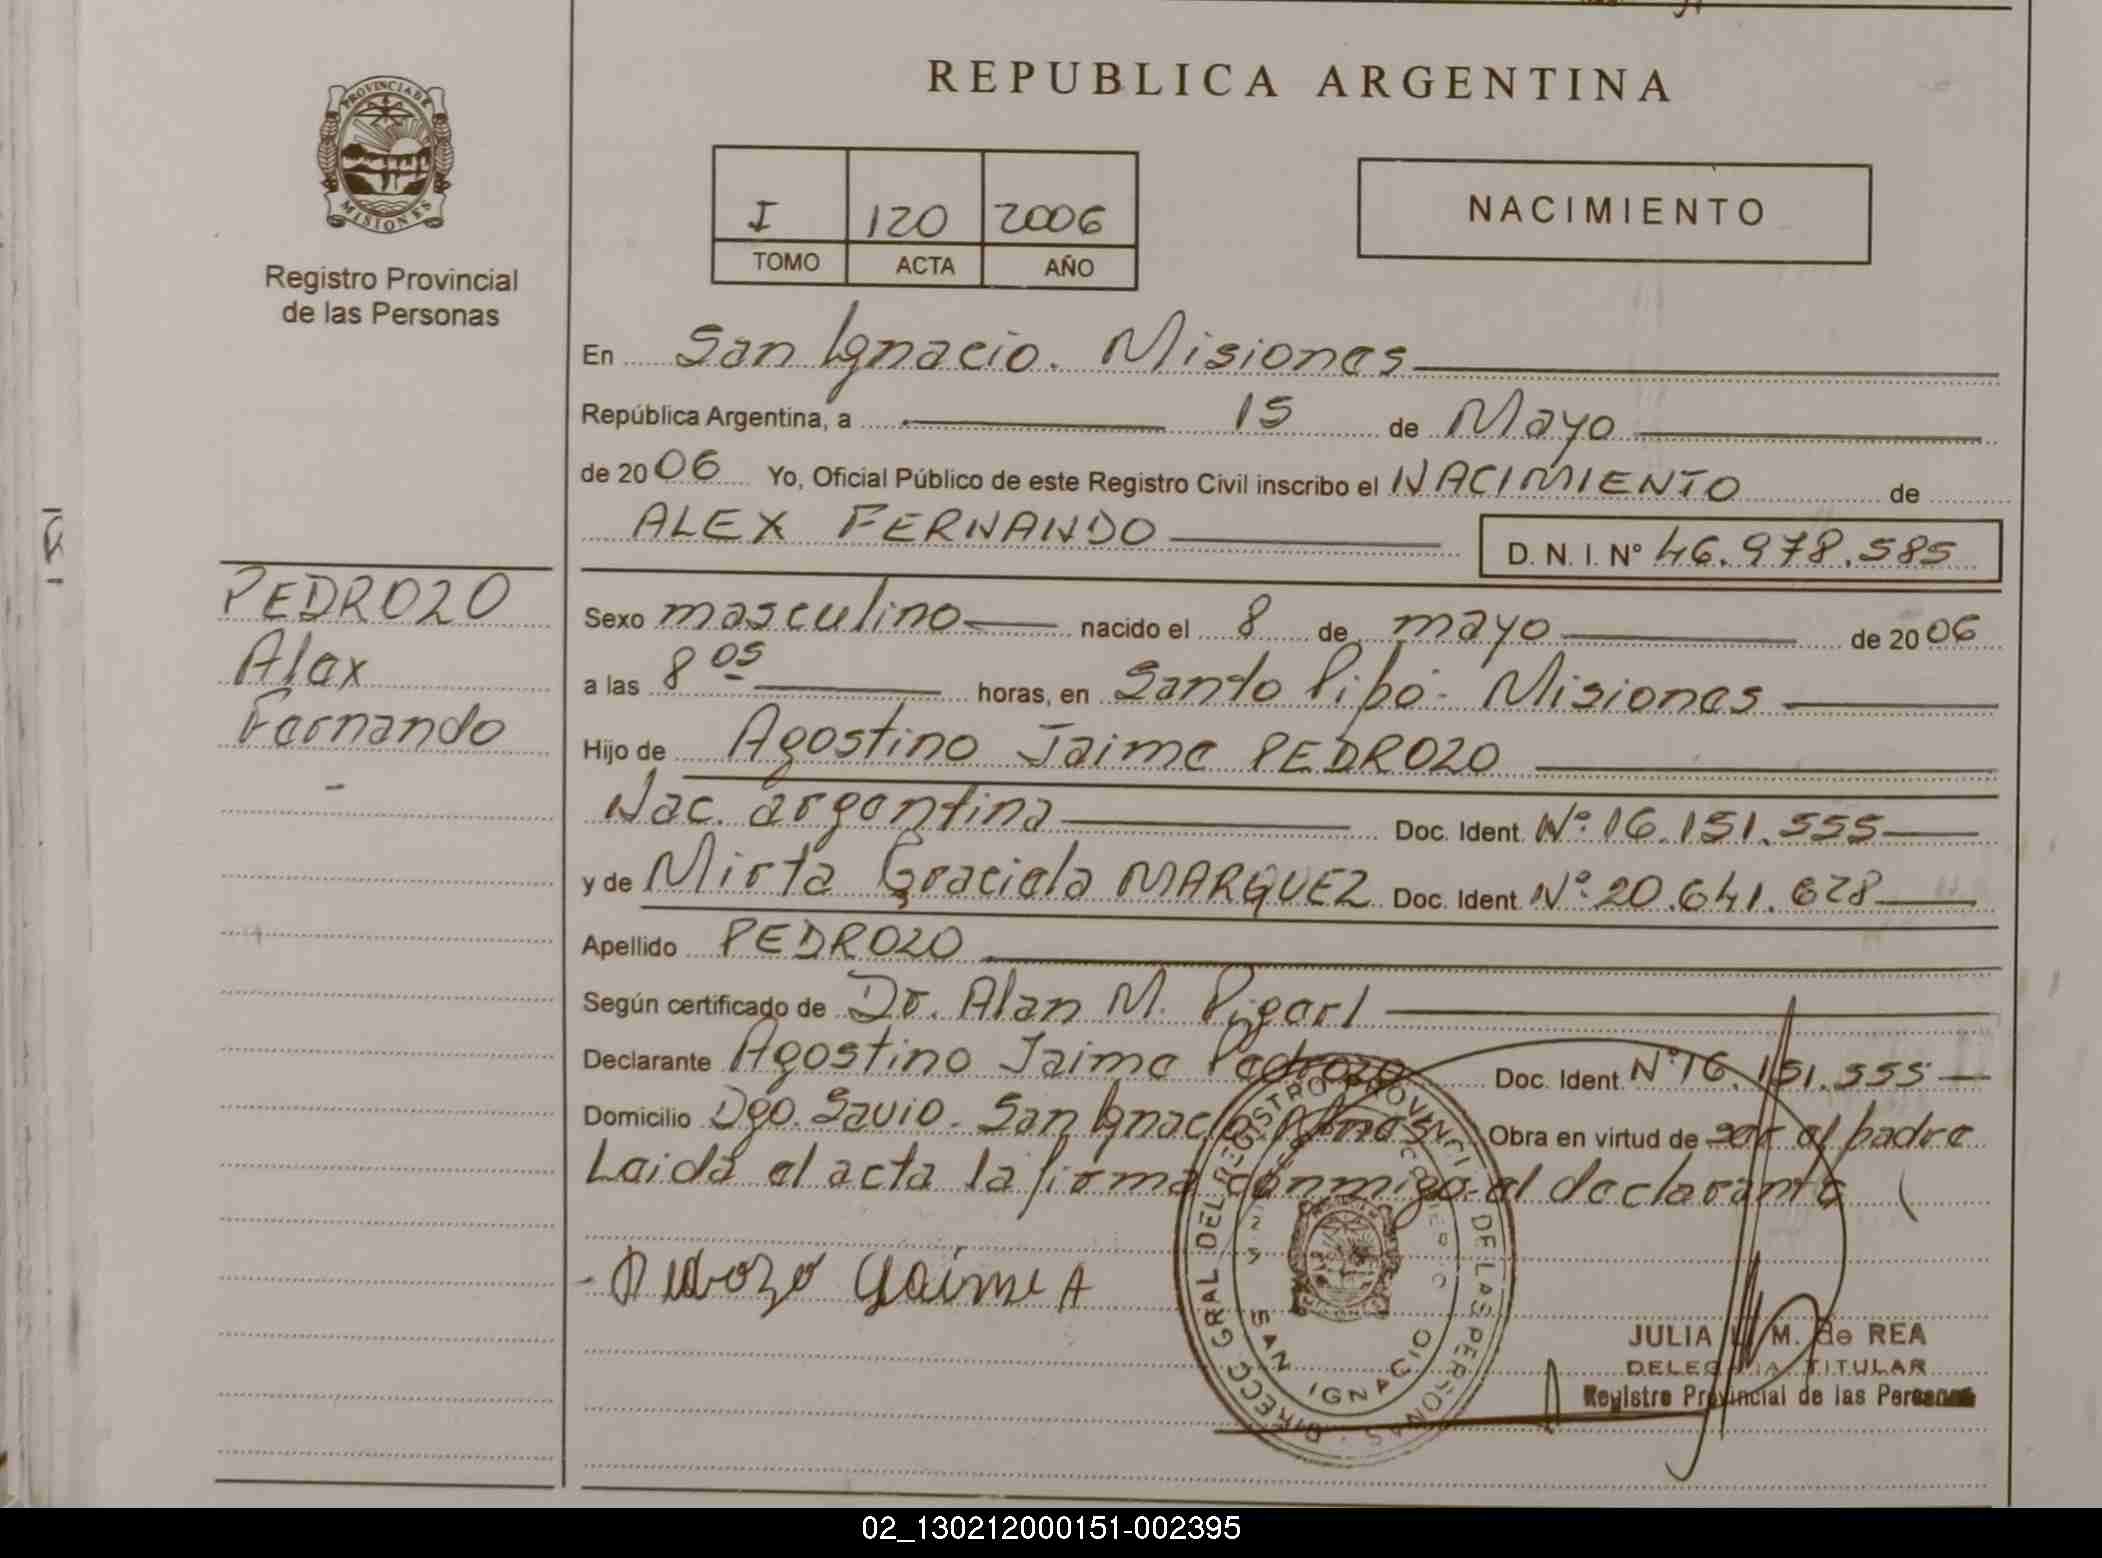 REPUBLICA ARGENTINA
PROVINCIA DE
MISIONES
Registro Provincial
de las Personas
I 120 2006
TOMO ACTA AÑO
NACIMIENTO
En San Ignacio. Misiones
República Argentina, a 15 de Mayo
de 2006 Yo, Oficial Público de este Registro Civil inscribo el NACIMIENTO de
ALEX FERNANDO D. N. I. Nº 46.978.585
PEDROZO
Alex
Fernando
Sexo masculino nacido el 8 de mayo de 2006
a las 8 05 horas, en Santo Pipó - Misiones
Hijo de Agostino Jaime PEDROZO
Nac. argentina Doc. Ident. Nº 16.151.555
y de Mirta Graciela MARQUEZ Doc. Ident. Nº 20.641.628
Apellido PEDROZO
Según certificado de Dr. Alan M.
Declarante Agostino Jaime Pedrozo Doc. Ident. Nº 16.151.555
Domicilio Dgo. Savio - San Ignacio. Obra en virtud de ser el padre
Leida el acta la firma conmigo el declarante
Pedrozo Jaime A
DIRECC GRAL DEL REGISTRO PROVINCI DE LAS PERSONAS
SAN IGNACIO
JULIA M. de REA
DELEGADA TITULAR
Registro Provincial de las Personas
02_130212000151-002395